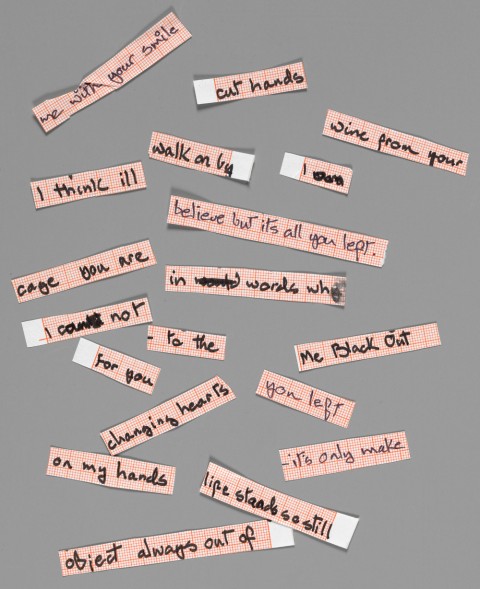 me with your smile
cut hands
wine from your
walk on by
I
I think ill
believe but its all you left.
cage you are
in words who
I not
- to the
Me Black Out
For you
you left
changing hearts
-it's only make
on my hands
life stands so still
object always out of